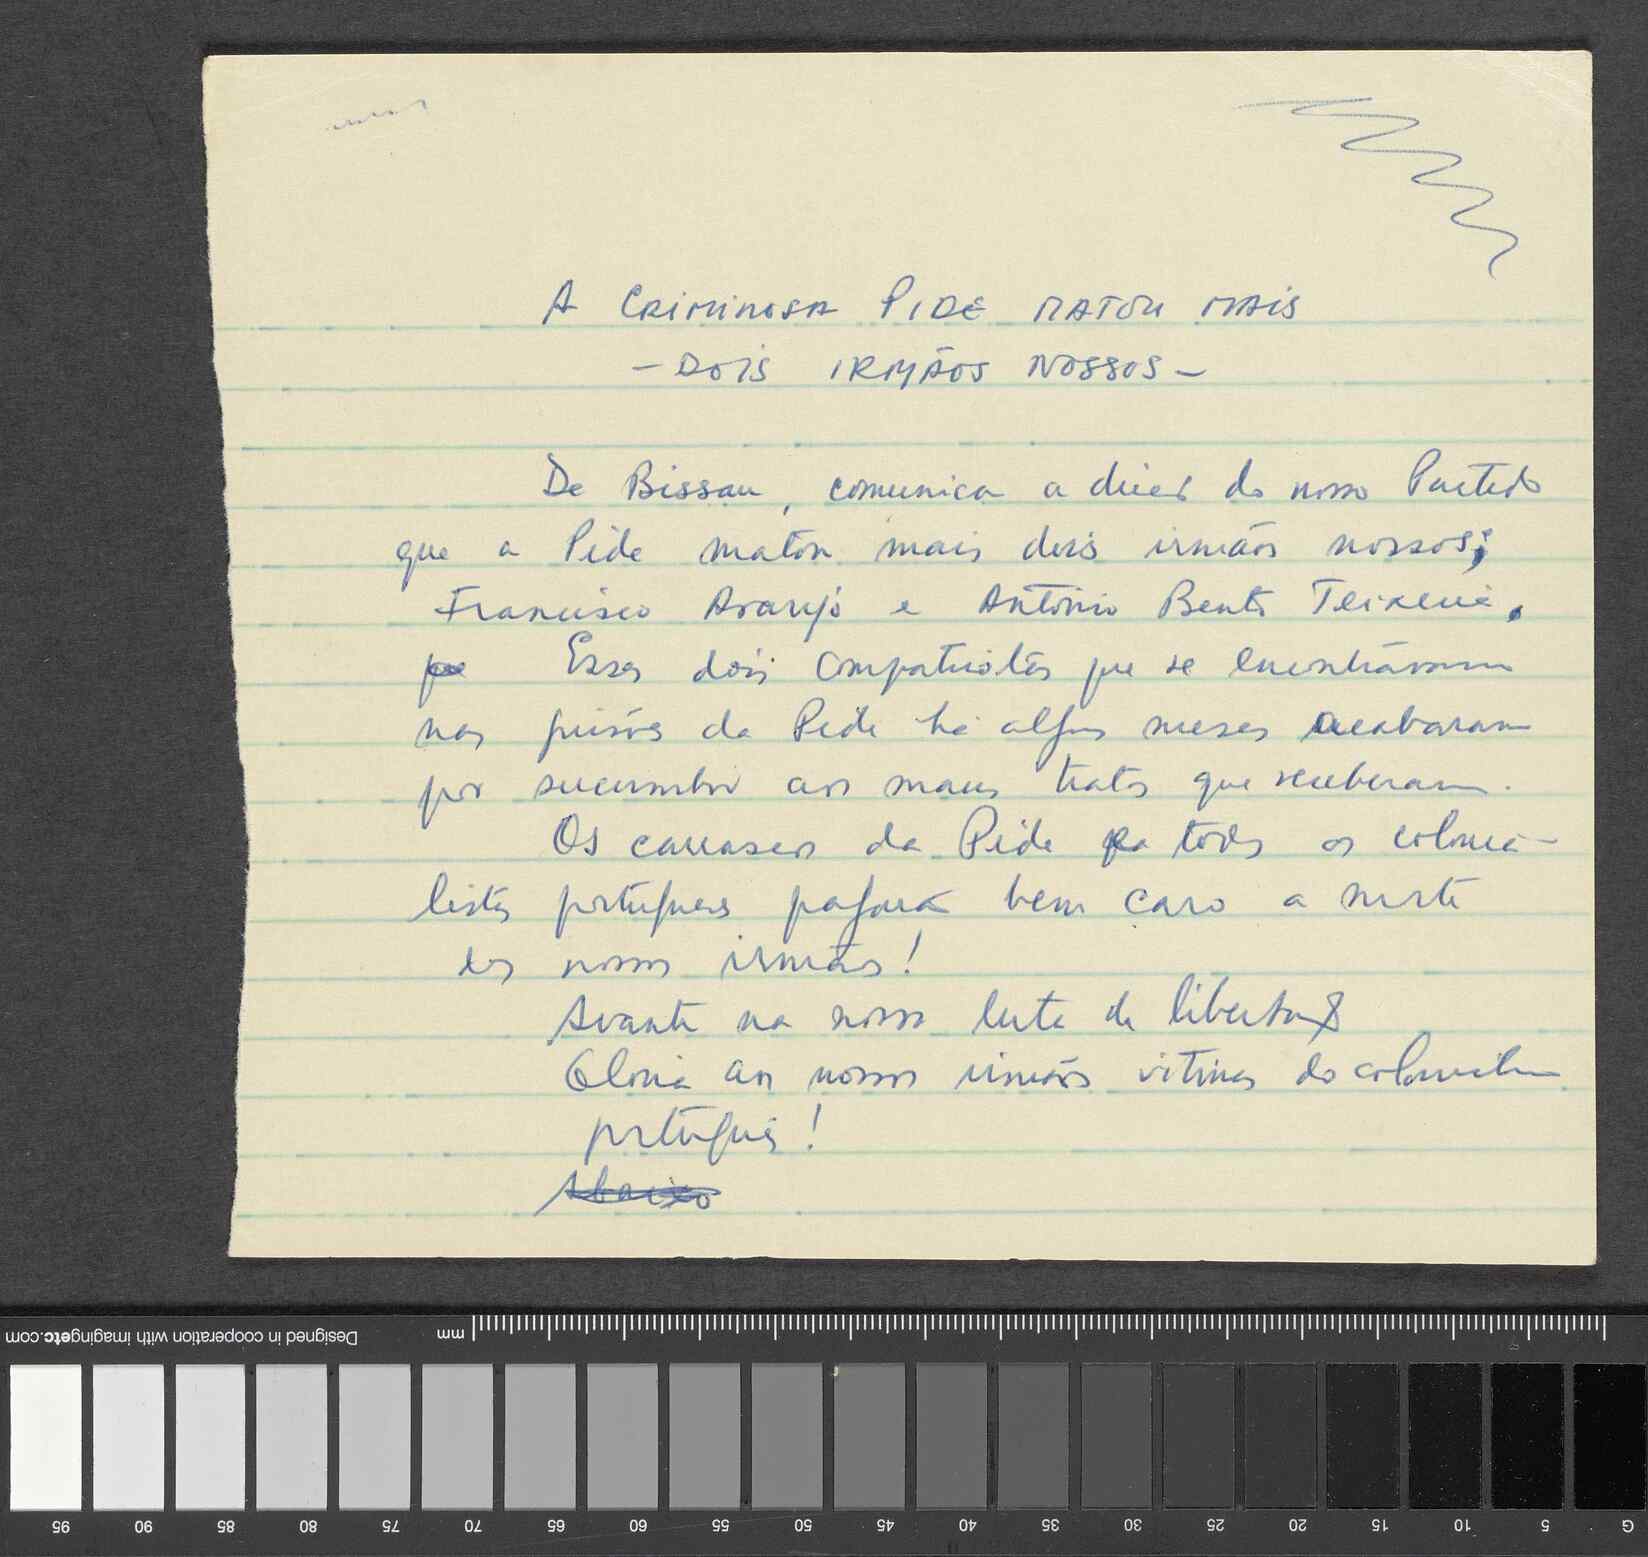 A CRIMINOSA PIDE MATOU MAIS
— DOIS IRMÃOS NOSSOS —
De Bissau, comunica a do nosso Partido
que a Pide matou mais dois irmãos nossos;
Francisco Araujo e António Bento Teixeira.
que Esses dois compatriotas que se encontravam
nas prisões da Pide há alguns meses acabaram
por sucumbir aos maus tratos que receberam.
Os carrascos da Pide todos os colonia-
listas portugueses pagarão bem caro a morte
dos nossos irmãos!
Avante na nossa luta de libertação
Gloria aos nossos irmãos vitimas do colonialismo
português!
Abaixo
Designed in cooperation with imagingetc.com
mm
95 90 85 80 75 70 65 60 55 50 45 40 35 30 25 20 15 10 5 G